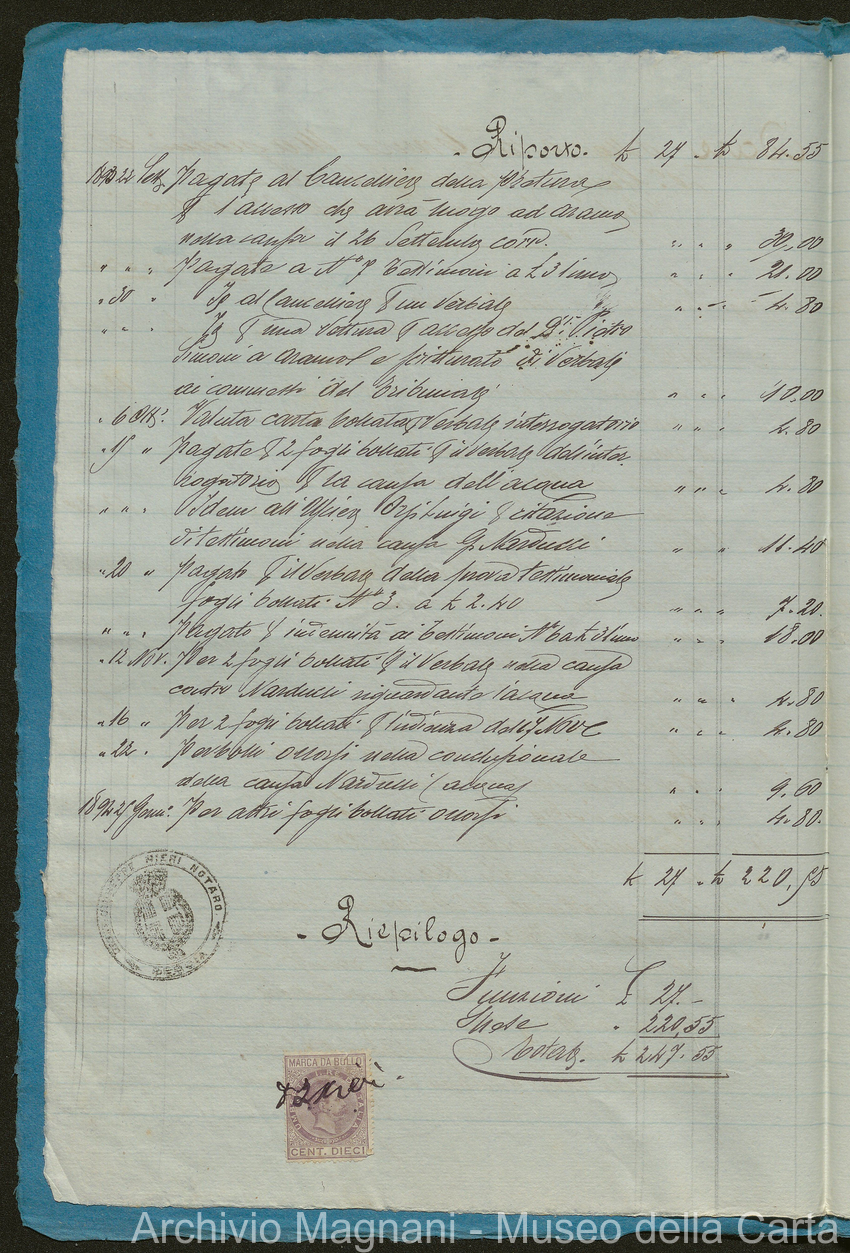 - Riporto. £ 27 . £ 84.55
1893 22 Sett. Pagate al Cancelliere della Pretura
l'accesso che avrà luogo ad Aramo
nella causa il 26 Settembre corr. " " " 30,00
" " " Pagate a N° 7 Testimoni a £ 3 l'uno " " " 21.00
" 30 " Id al Cancelliere un Verbale " " " 4.80
" " " Id una Vettura accesso del Pietro
Simoni a Aramo e scritturato di Verbale
ai connessi del Tribunale " " " 10,00
" 6 Ott. Valuta carta bollata Verbale interrogatorio " " " 4.80
" 15 " Pagate 2 fogli bollati il Verbale dell'inter
rogatorio la causa dell'acqua " " " 4.80
" " " Idem all'Usciere Luigi citazione
di testimoni nella causa G. Nardulli " " 11.40
" 20 " Pagato il Verbale della prova testimoniale
fogli bollati N° 3. a £ 2.40 " " " 7.20
" " " Pagato indennità ai Testimoni N° 6 a £ 3 l'uno " " " 18.00
" 12 Nov. Per 2 fogli bollati il Verbale nella causa
contro Nardulli riguardante l'acqua " " " 4.80
" 16 " Per 2 fogli bollati l'udienza del 17 Nov " " " 4.80
" 22 " Per bolli occorsi nella conclusionale
della causa Nardulli (acqua) " " " 9.60
1894 25 Genn. Per altri fogli bollati occorsi " " " 4.80.
£ 27 . £ 220,55
- Riepilogo -
Funzioni £ 27.-
Spese " 220,55
Totale. £ 247.55
GIUSEPPE NIERI NOTARO
PESCIA
MARCA DA BOLLO
Nieri
CENT. DIECI
Archivio Magnani - Museo della Carta